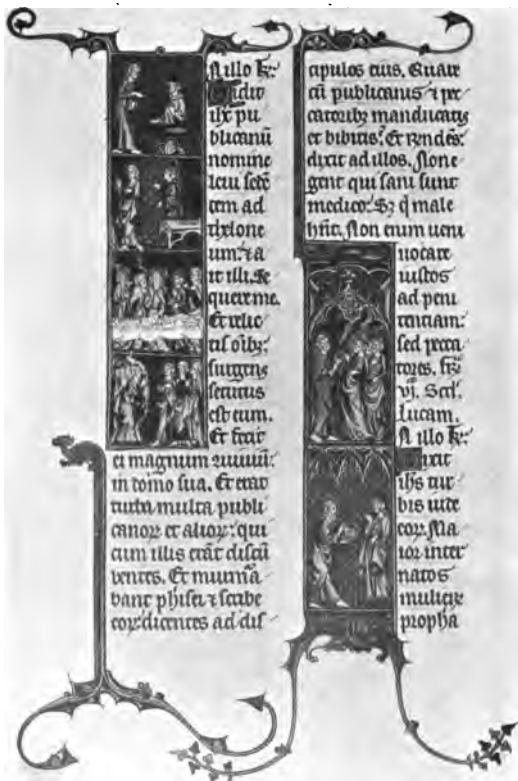 N illo tр̄:
Vidit
ihc pu
blicanū
nomine
leui sedē
tem ad
thelone
um: ⁊ a
it illi. Se
quere me.
Et relic
tis oībꝫ:
surgens
secutus
est eum.
Et fecit
ei magnum
in domo sua. Et erat
turba multa publi
canoꝝ et alioꝝ: qui
cum illis erāt discū
bentes. Et murm̄a
bant phisei ⁊ scribe
eoꝝ: dicentes ad dis
cipulos eius. Quare
cū publicanis ⁊ pec
catoribꝫ manducatis
et bibitis? Et rsndēs:
dixit ad illos. Non e
gent qui sani sunt
medico: Sꝫ q̄ male
hn̄t. Non enim ueni
uocare
iustos
ad peni
tenciam:
sed pecca
tores. fr̄
vj. Scd'.
Lucam.
N illo tр̄:
Dixit
ihs tur
bis iude
oꝝ. Ma
ior inter
natos
mulieꝝ
propha